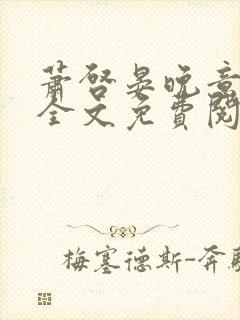 萧启晏晚意
全文免费阅
梅塞德斯-奔驰